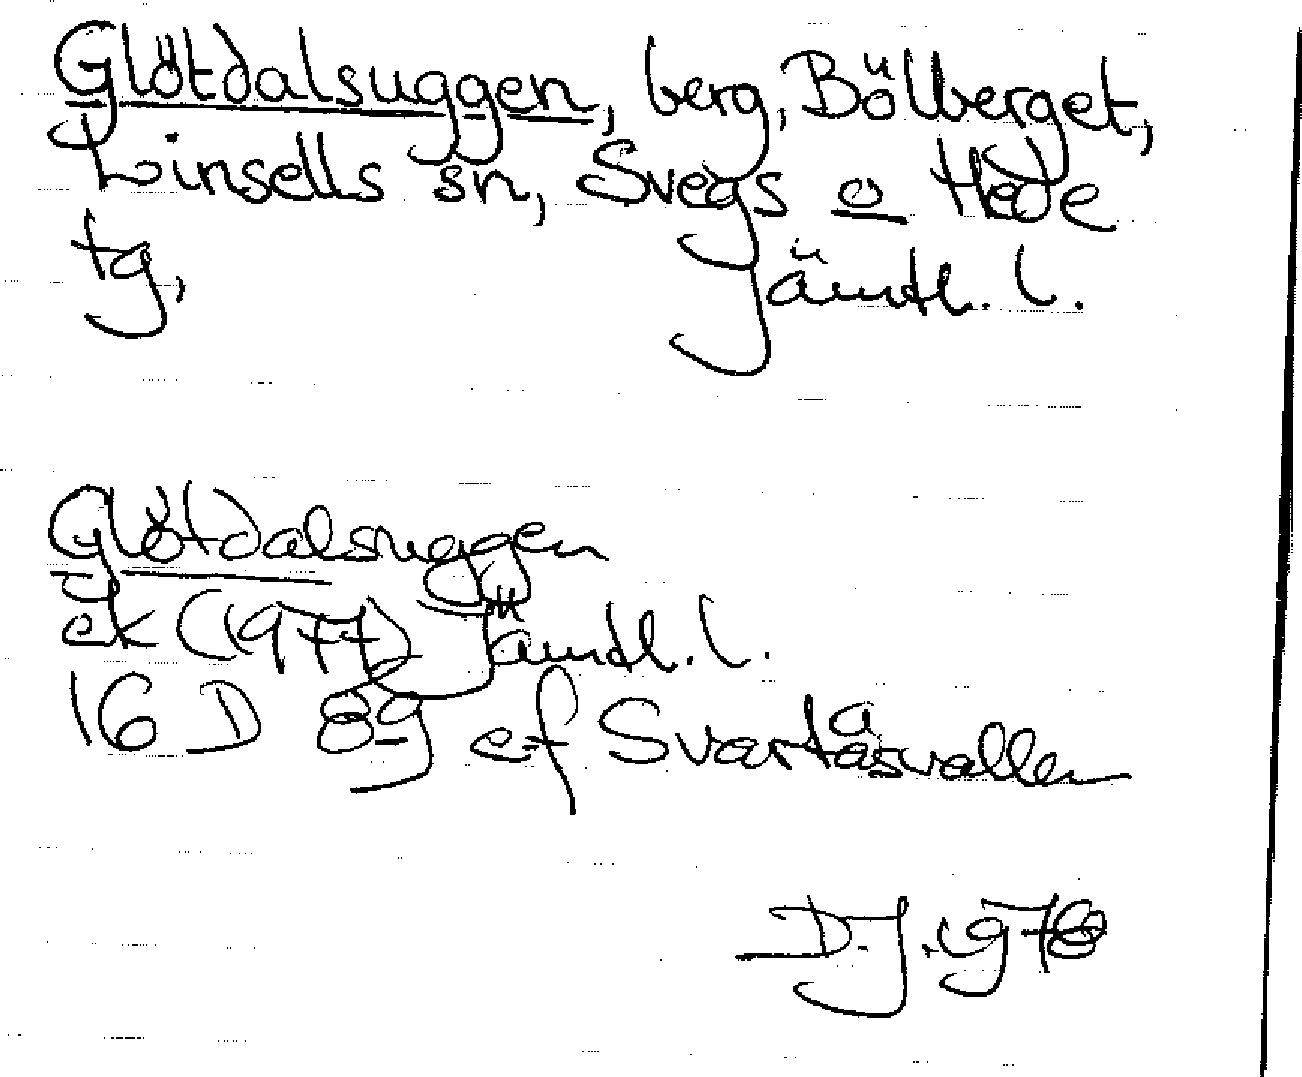 Glötdalsuggen, berg, Bölberget,
Linsells sn, Svegs o Hede
tg, Jämtl. l.
Glötdalsuggen
ek (1977) Jämtl. l.
16 D 8g ef Svartåsvallen
D.J. 1978